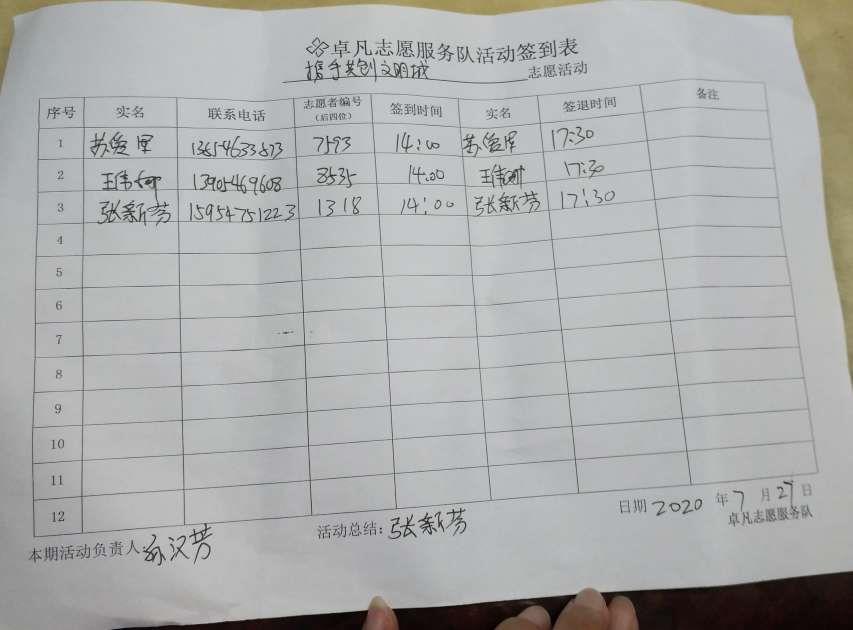 卓凡志愿服务队活动签到表
携手共创文明城 志愿活动
序号 实名 联系电话 志愿者编号（后四位） 签到时间 实名 签退时间 备注
1 苏爱军 13654633873 7593 14:00 苏爱军 17:30
2 王伟 13905469608 8535 14:00 王伟 17:30
3 张新芳 15954751223 1318 14:00 张新芳 17:30
4
5
6
7
8
9
10
11
12
日期 2020 年 7 月 27 日
本期活动负责人 孙汉芳 活动总结: 张新芳
卓凡志愿服务队